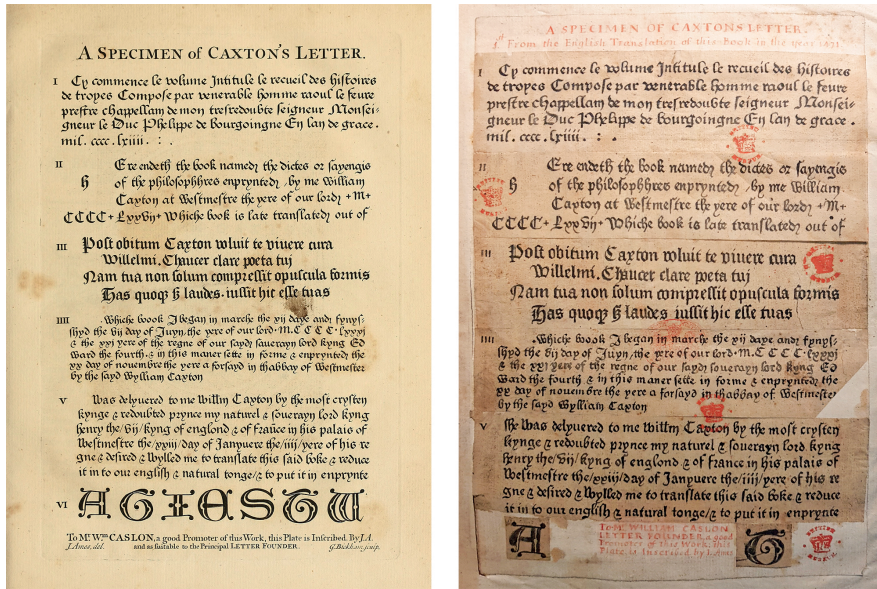 A SPECIMEN of CAXTON'S LETTER.
I Cy commence le volume Intitule le recueil des histoires
de tropes Compose par venerable homme raoul le feure
prestre chappellain de mon tresredoubte seigneur Monsei-
gneur le Duc Phelippe de bourgoingne En lan de grace .
mil . cccc . lxiiii . : .
II Ere endeth the book named the dictes or sayengis
h of the philosophhres enprynted /by me william
Caxton at westmestre the yere of our lord +M+
CCCC+ Lxxvij+ Whiche book is late translated out of
III Post obitum Caxton voluit te viuere cura
Willelmi. Chaucer clare poeta tuj
Nam tua non solum compressit opuscula formis
Has quoqȝ ß laudes. iussit hic esse tuas
IIII .Whiche boook I began in marche the xij daye and fynys-
shyd the vij day of Juyn, the yere of our lord · M. C C C C · lxxxj
& the xxj yere of the regne of our sayd sauerayn lord kyng Ed
ward the fourth. & in this maner sette in forme & enprynted the
xx day of nouembre the yere a forsayd in thabbay of Westmester
by the sayd Wylliam Caxton
V Was delyuered to me Willm Caxton by the most crysten
kynge & redoubted prynce my naturel & souerayn lord kyng
henry the /vij/ kyng of englond & of frauce in his palais of
Westmestre the /xxiij/ day of Janyuere the /iiij/ yere of his re
gne & desired & wylled me to translate this said boke & reduce
it in to our english & natural tonge /& to put it in enprynte
VI A G I E S T W
To Mr. Wm. CASLON, a good Promoter of this Work, this Plate is Inscribed. By J.A.
J. Ames, del. and as suitable to the Principal LETTER FOUNDER. G. Bickham, sculp.
A SPECIMEN OF CAXTONS LETTER.
From the English Translation of this Book in the year 1471
I Cy commence le volume Intitule le recueil des histoires
de tropes Compose par venerable homme raoul le feure
prestre chappellain de mon tresredoubte seigneur Monsei-
gneur le Duc Phelippe de bourgoingne En lan de grace .
mil . cccc . lxiiii . : .
II Ere endeth the book named the dictes or sayengis
h of the philosophhres enprynted /by me william
Caxton at westmestre the yere of our lord +M+
CCCC+ Lxxvij+ Whiche book is late translated out of
III Post obitum Caxton voluit te viuere cura
Willelmi. Chaucer clare poeta tuj
Nam tua non solum compressit opuscula formis
Has quoqȝ ß laudes. iussit hic esse tuas
IIII .Whiche boook I began in marche the xij daye and fynys-
shyd the vij day of Juyn, the yere of our lord · M. C C C C · lxxxj
& the xxj yere of the regne of our sayd souerayn lord kyng Ed
ward the fourth. & in this maner sette in forme & enprynted the
xx day of nouembre the yere a forsayd in thabbay of Westmester
by the sayd Wylliam Caxton
V she Was delyuered to me Willm Caxton by the most crysten
kynge & redoubted prynce my naturel & souerayn lord kyng
henry the /vij/ kyng of englond & of france in his palais of
Westmestre the /xxiij/ day of Janyuere the /iiij/ yere of his re
gne & desired & wylled me to translate this said boke & reduce
it in to our english & natural tonge /& to put it in enprynte
A
To Mr. WILLIAM CASLON
LETTER FOUNDER, a good
Promoter of this Work, this
Plate is Inscribed, by J. Ames
BRITISH MUSEUM